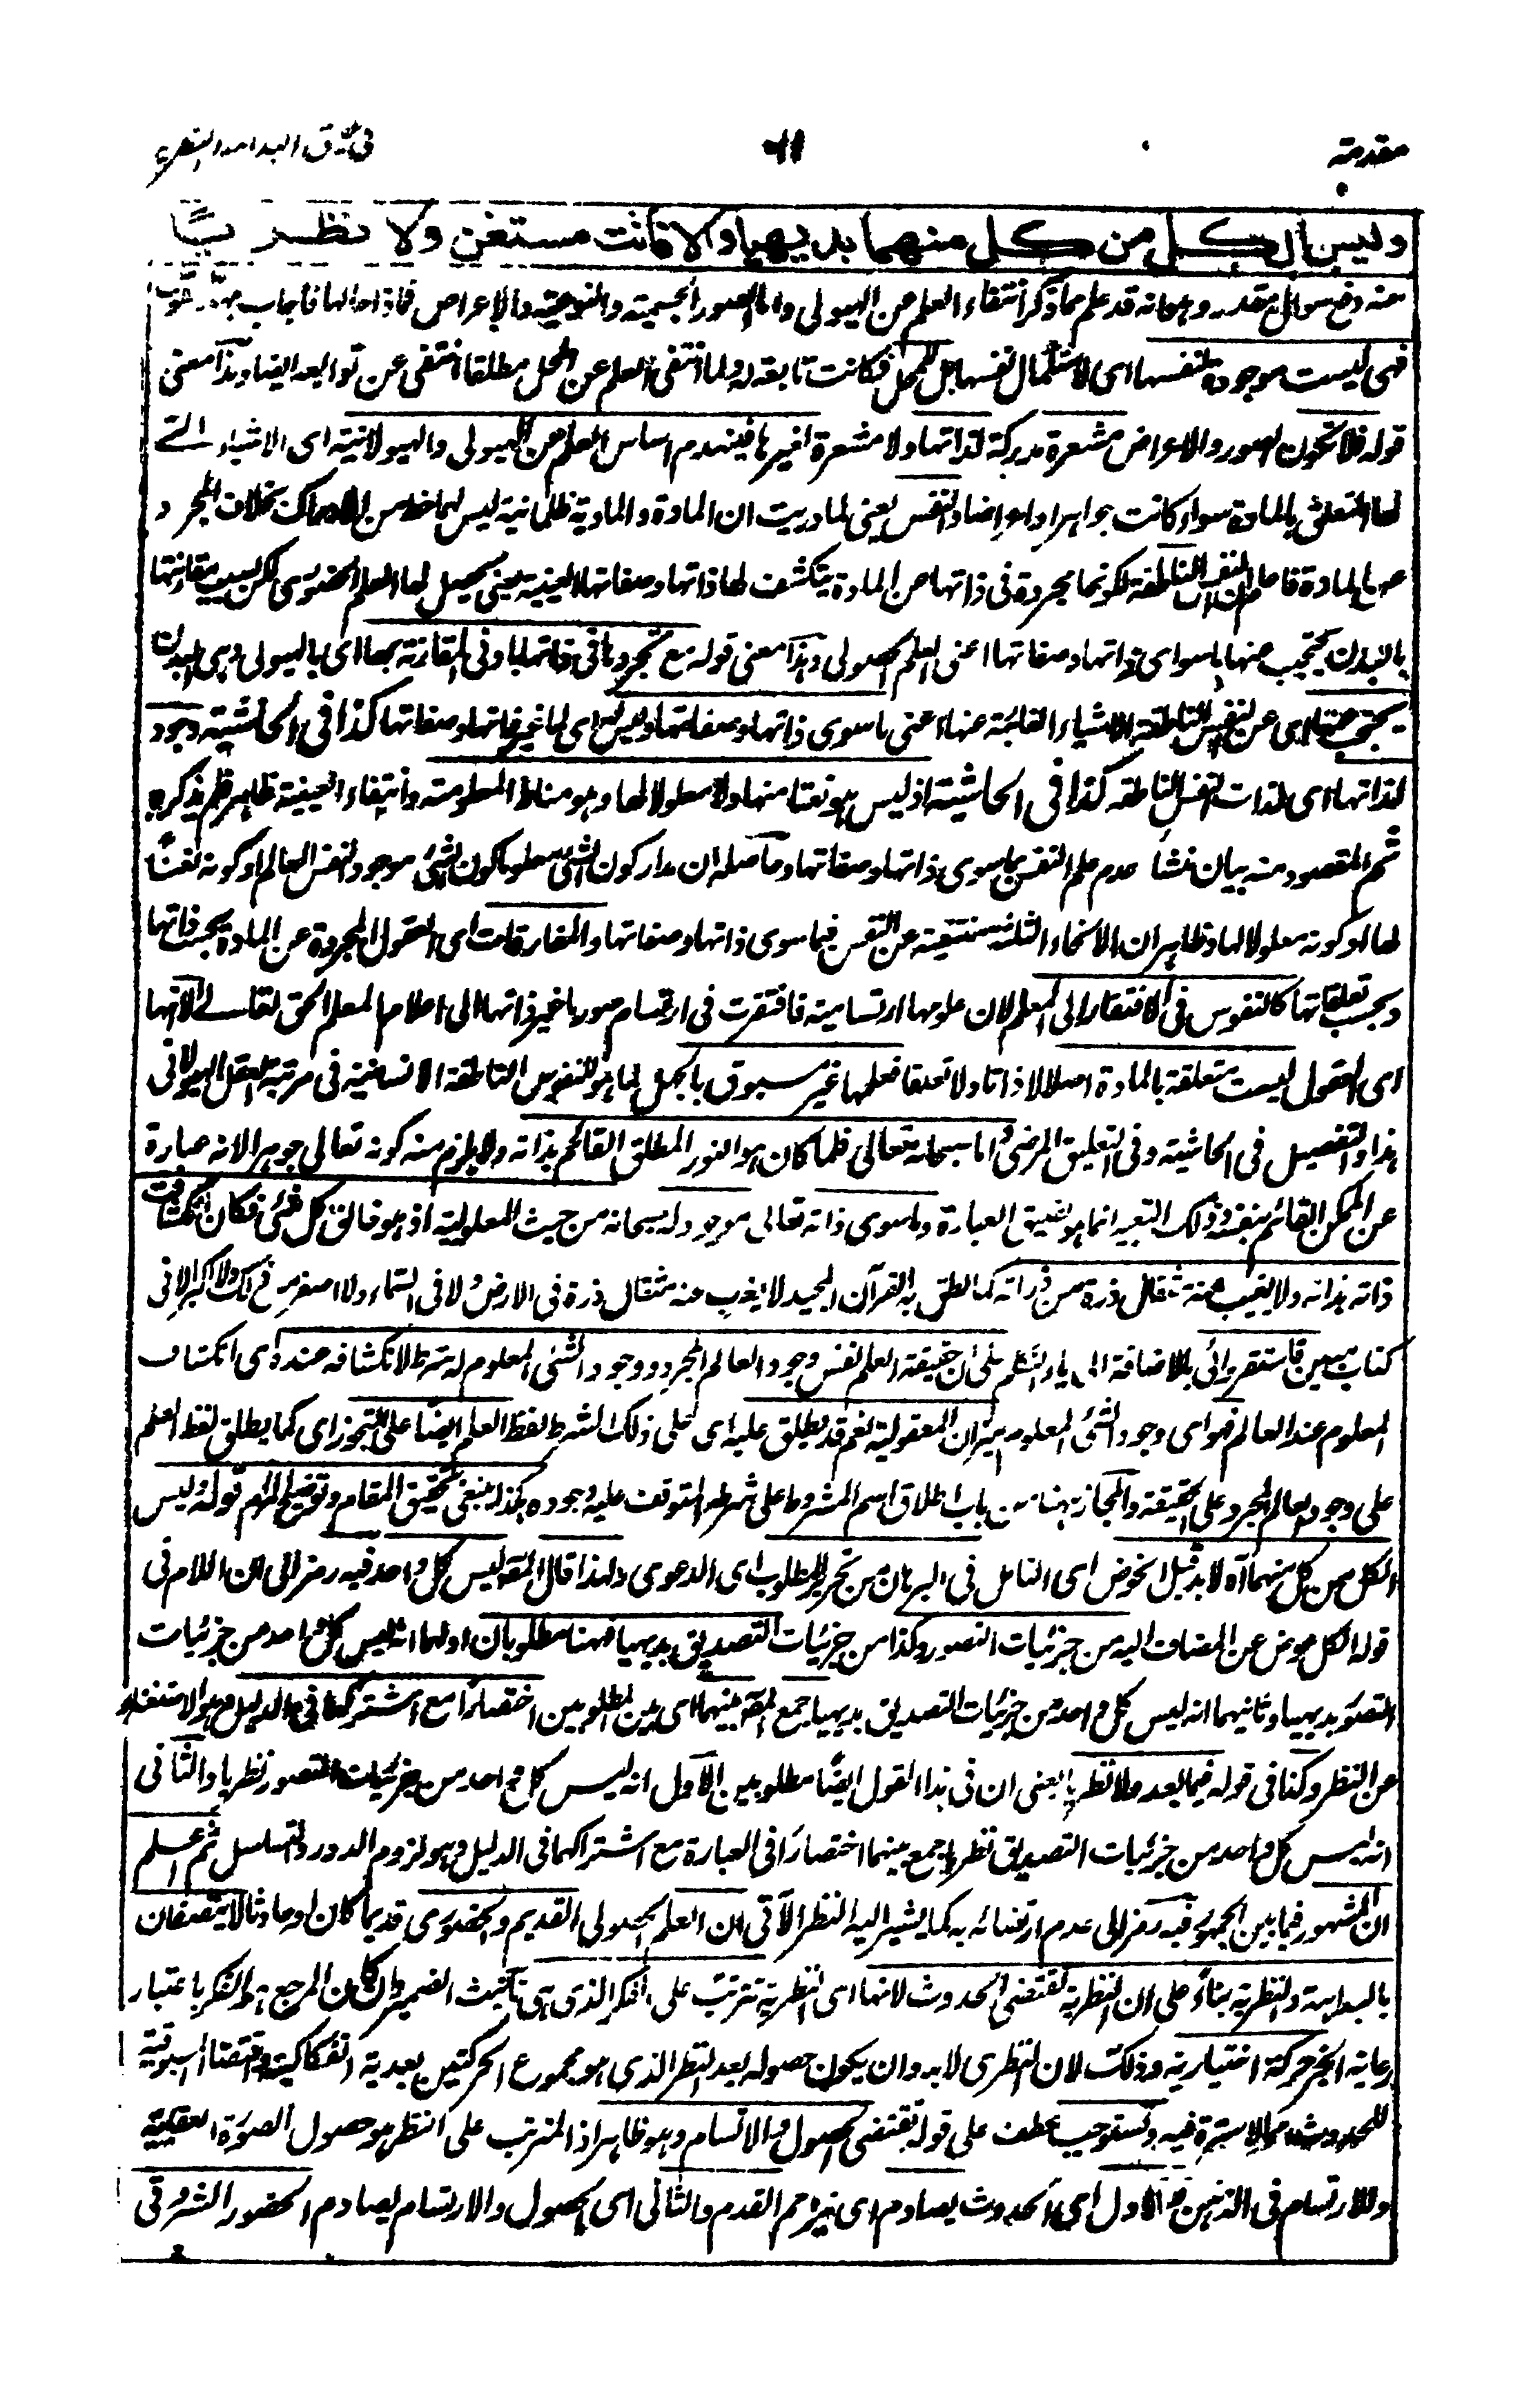 مقدمة
وليس الكل من كل منهما بديهيا والا فانت مستغن ولا نظريا
منه دفع سوال مقدر وهو انه قد علم مما ذكر انتفاء العلم عن الهيولى واما الصور الجسمية والنوعية والاعراض فماذا حالها فاجاب
فهى ليست موجودة لنفسها اى لاستكمال نفسها بل للمحل فكانت تابعة له ولما انتفى العلم عن المحل مطلقا انتفى عن توابعه ايضا وهذا معنى
قوله فلا تكون الصور والاعراض مشعرة مدركة لذاتها ولا مشعرة لغيرها فينهدم اساس العلم عن الهيولى والهيولانية اى الاشياء التى
لها التعلق بالمادة سواء كانت جواهر او اعراضا والنفس يعنى لما دريت ان المادة والمادية ظلمانية ليس لهما حظ من الادراك بخلاف المجرد
عن المادة فاعلم ان النفس الناطقة لكونها مجردة فى ذاتها عن المادة ينكشف لها ذاتها وصفاتها العينية يعنى يحصل لها العلم الحضورى لكن بسبب مقارنتها
بالبدن يحتجب عنها ما سواى ذاتها وصفاتها اعنى العلم الحصولى وهذا معنى قوله مع تجردها فى ذاتها لما وفى المقارنة بها اى بالهيولى وهى البدن
يحتجب عنها اى عن النفس الناطقة الاشياء الغائبة عنها اعنى ما سوى ذاتها وصفاتها وليس اى لما غير ذاتها وصفاتها كذا فى الحاشية وجود
لذاتها اى لذات النفس الناطقة كذا فى الحاشية اذ ليس هو نعتا منها ولا معلولا لها وهو مناط المعلومية وانتفاء العينية ظاهر فلم يذكره
ثم المقصود منه بيان منشأ عدم علم النفس بما سوى ذاتها وصفاتها وحاصله ان مدار كون الشئ معلوما كون الشئ موجودا لنفس العالم او كونه نعتا
لها او كونه معلولا لها وظاهر ان الانحاء الثلثة منتفية عن النفس فيما سوى ذاتها وصفاتها والمفارقات اى العقول المجردة عن المادة بحسب ذاتها
وبحسب تعلقاتها كالنفوس فى الافتقار الى المعلم لان علومها ارتسامية فافتقرت فى ارتسام صور ما غير ذاتها الى اعلام المعلم الحق تعالى لانها
اى العقول ليست متعلقة بالمادة اصلا لا ذاتا ولا تعلقا فعلمها غير مسبوق بالجهل لما هو للنفوس الناطقة الانسانية فى مرتبة العقل الهيولانى
هذا والتفصيل فى الحاشية وفى التعليق المرضى اما سبحانه تعالى فلما كان هو النور المطلق القائم بذاته ولا يلزم منه كونه تعالى جوهرا لانه عبارة
عن الممكن القائم بنفسه وذلك التعبير انما هو لضيق العبارة وما سوى ذاته تعالى موجود له سبحانه من حيث المعلولية اذ هو خالق كل شئ فكان انكشفت
ذاته بذاته ولا يغيب عنه مثقال ذرة من ذراته كما نطق به القرآن المجيد لا يعزب عنه مثقال ذرة فى الارض ولا فى السماء ولا اصغر من ذلك ولا اكبر الا فى
كتاب مبين فاستقر رائى بالاضافة الى ياء المتكلم على ان حقيقة العلم نفس وجود العالم المجرد ووجود الشئ المعلوم له شرط لانكشافه عنده اى انكشاف
المعلوم عند العالم فهو اى وجود الشئ المعلوم ميزان المعقولية نعم قد يطلق عليه اى على ذلك الشرط لفظ العلم ايضا على التجوز اى كما يطلق لفظ العلم
على وجود العالم المجرد على الحقيقة والمجاز ههنا من باب اطلاق اسم المشروط على شرطه المتوقف عليه وجوده هكذا ينبغى تحقيق المقام وتوضيح المرام قوله وليس
الكل من كل منهما آه لا بد قبل الخوض اى التامل فى البرهان من تحرير المطلوب اى الدعوى ولهذا قال المصـ ليس كل واحد فيه رمز الى ان اللام فى
قوله الكل عوض عن المضاف اليه من جزئيات التصور وكذا من جزئيات التصديق بديهيا فههنا مطلوبان اولهما انه ليس كل واحد من جزئيات
التصور بديهيا وثانيهما انه ليس كل واحد من جزئيات التصديق بديهيا جمع المصـ بينهما اى بين المطلوبين اختصارا مع اشتراكهما فى الدليل وهو الاستغناء
عن النظر وكذا فى قوله فيما بعد ولا نظريا يعنى ان فى هذا القول ايضا مطلوبين الاول انه ليس كل واحد من جزئيات التصور نظريا والثانى
انه ليس كل واحد من جزئيات التصديق نظريا جمع بينهما اختصارا فى العبارة مع اشتراكهما فى الدليل وهو لزوم الدور والتسلسل ثم اعلم
ان المشهور فيما بين الجمهور فيه رمز الى عدم ارتضائه به كما يشير اليه النظر الآتى ان العلم الحصولى القديم والحضورى قديما كان او حادثا لا يتصفان
بالبداهة والنظرية بناءً على ان النظرية تقتضى الحدوث لانها اى النظرية تترتب على الفكر الذى هى تانيث الضمير وان كان المرجع هو الفكر باعتبار
رعاية الخبر حركة اختيارية وذلك لان النظرى لا بد وان يكون حصوله بعد النظر الذى هو مجموع الحركتين بعدية انفكاكية واقتضاء المسبوقية
للحدوث مما لا سترة فيه وتستوجب عطف على قوله تقتضى الحصول والارتسام وهو ظاهر اذ المترتب على النظر هو حصول الصورة العقلية
والارتسام فى الذهن فالاول اى الحدوث يصادم اى يزاحم القدم والثانى اى الحصول والارتسام يصادم الحضور الشروقى